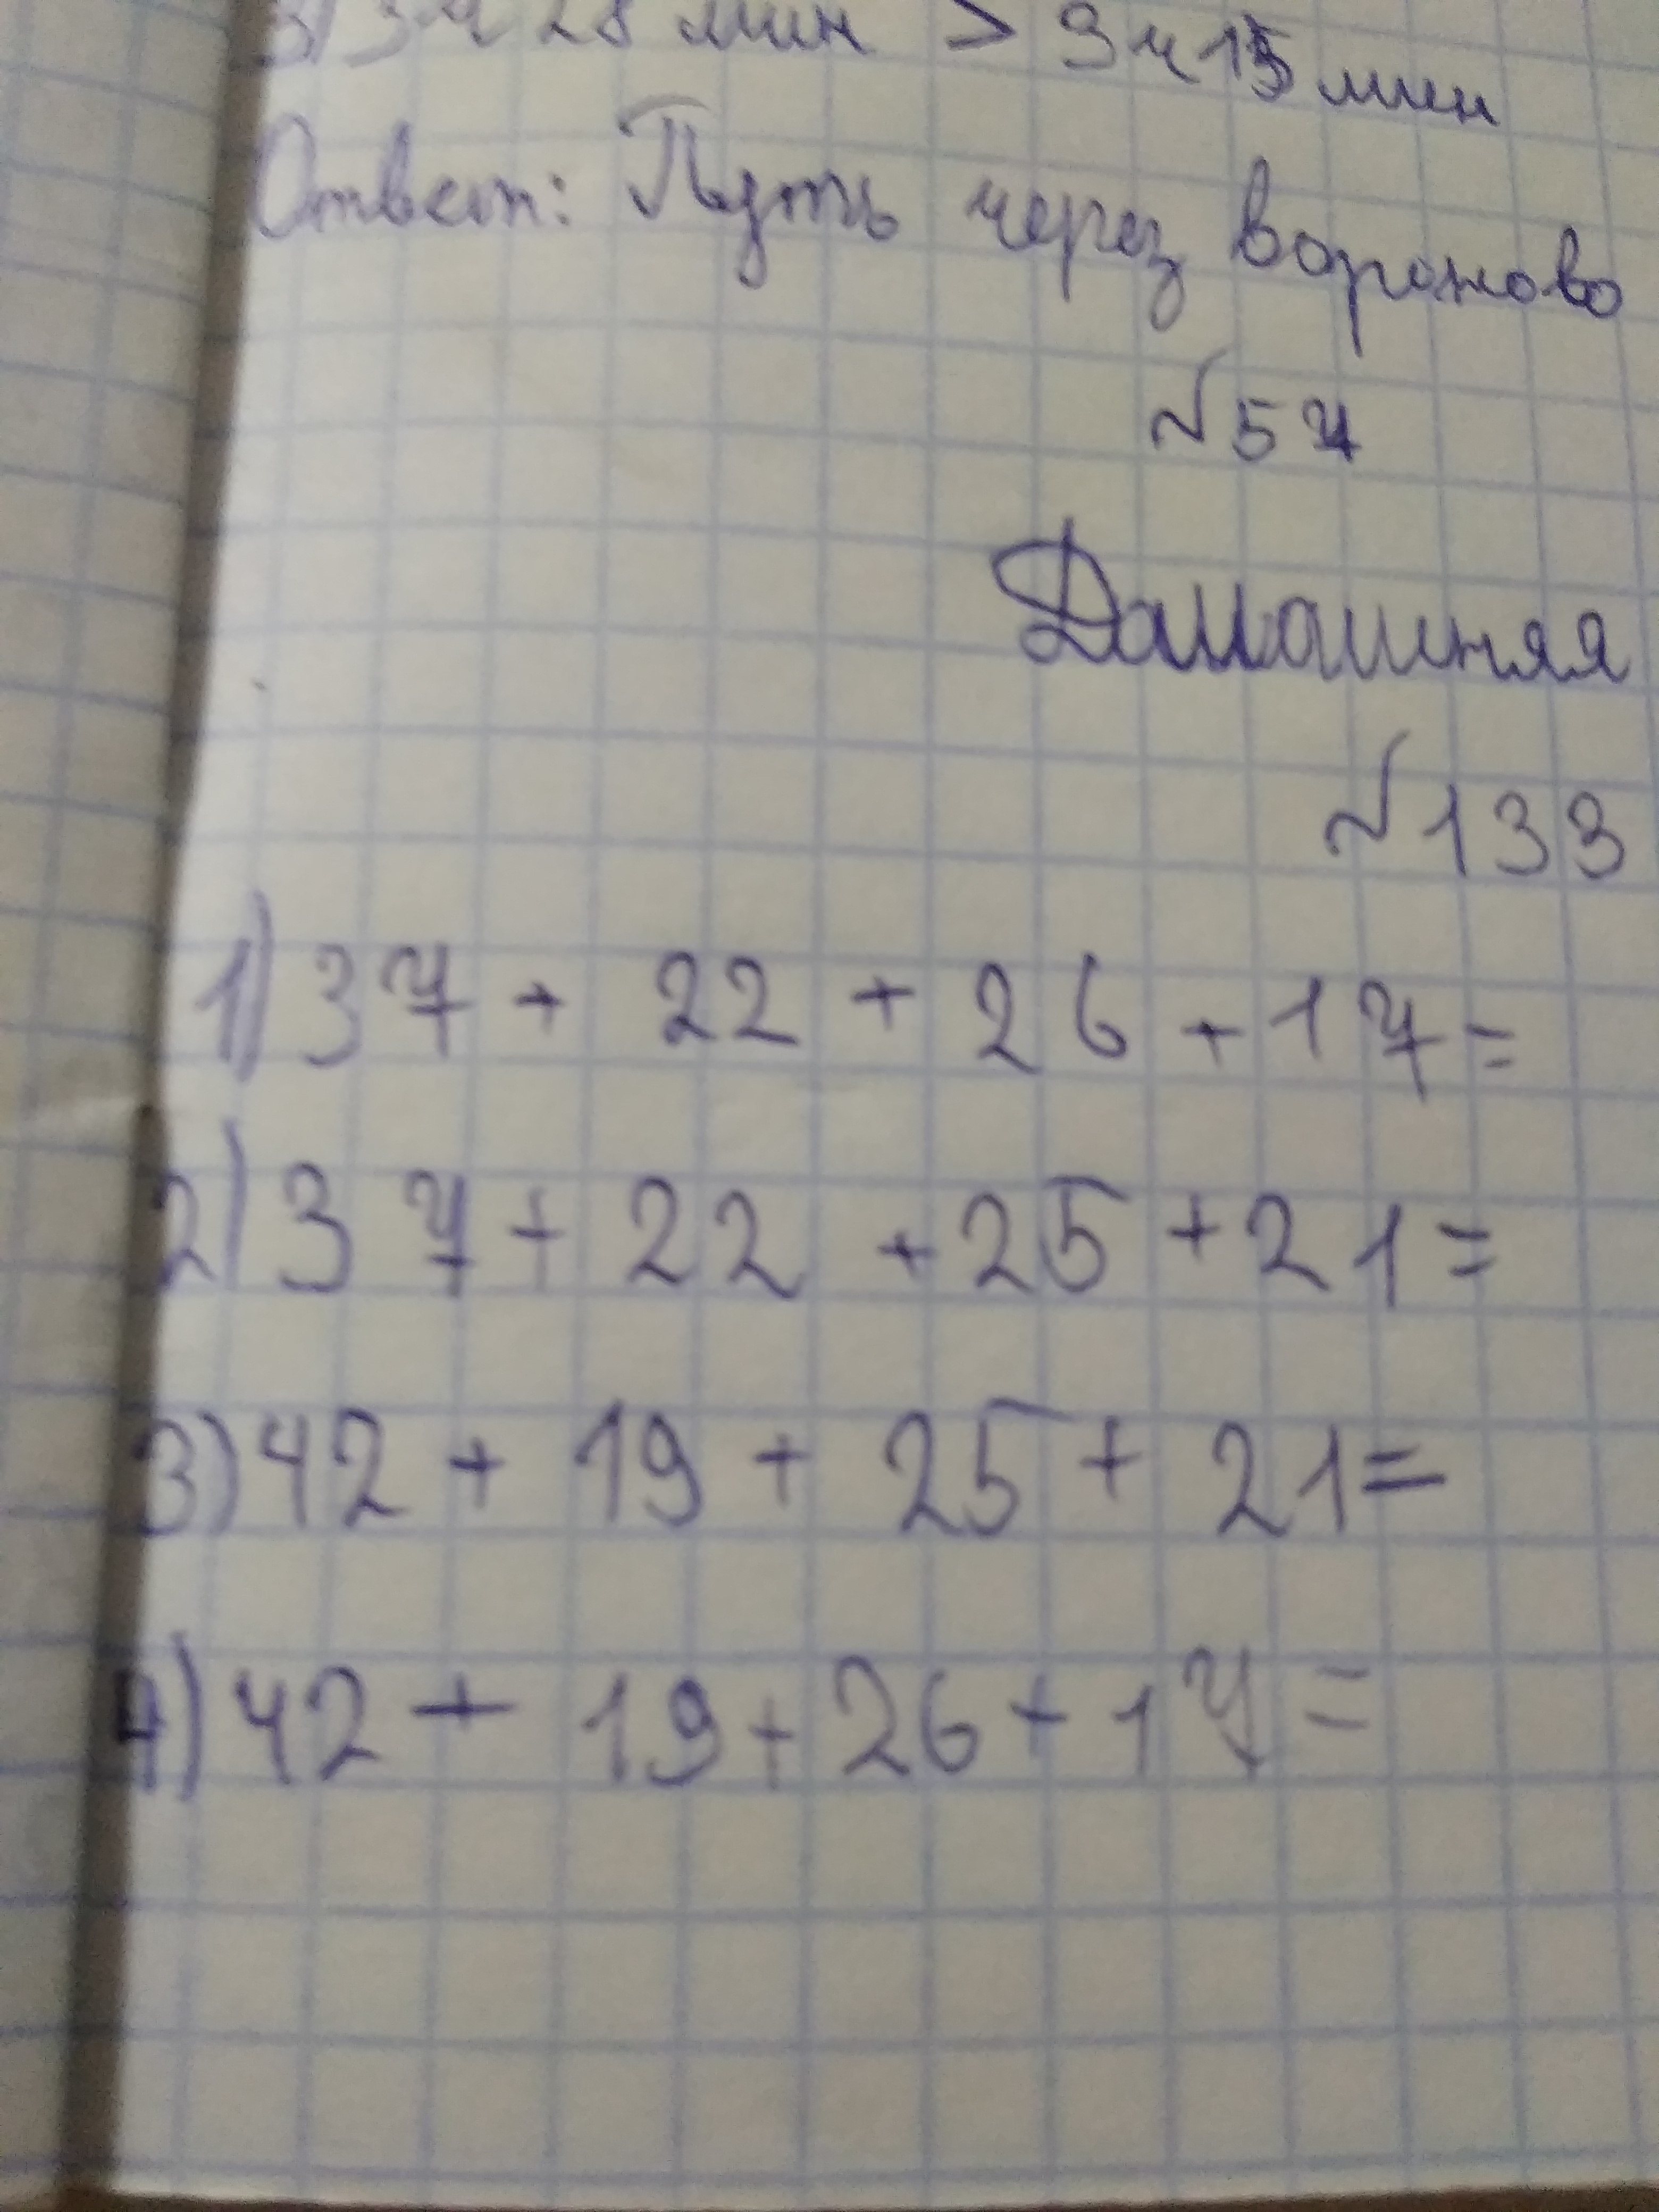 3) 3ч 28 мин > 3ч 15 мин
Ответ: Путь через вороново
№57
Домашняя
№133
1) 37 + 22 + 26 + 17 =
2) 37 + 22 + 25 + 21 =
3) 42 + 19 + 25 + 21 =
4) 42 + 19 + 26 + 17 =